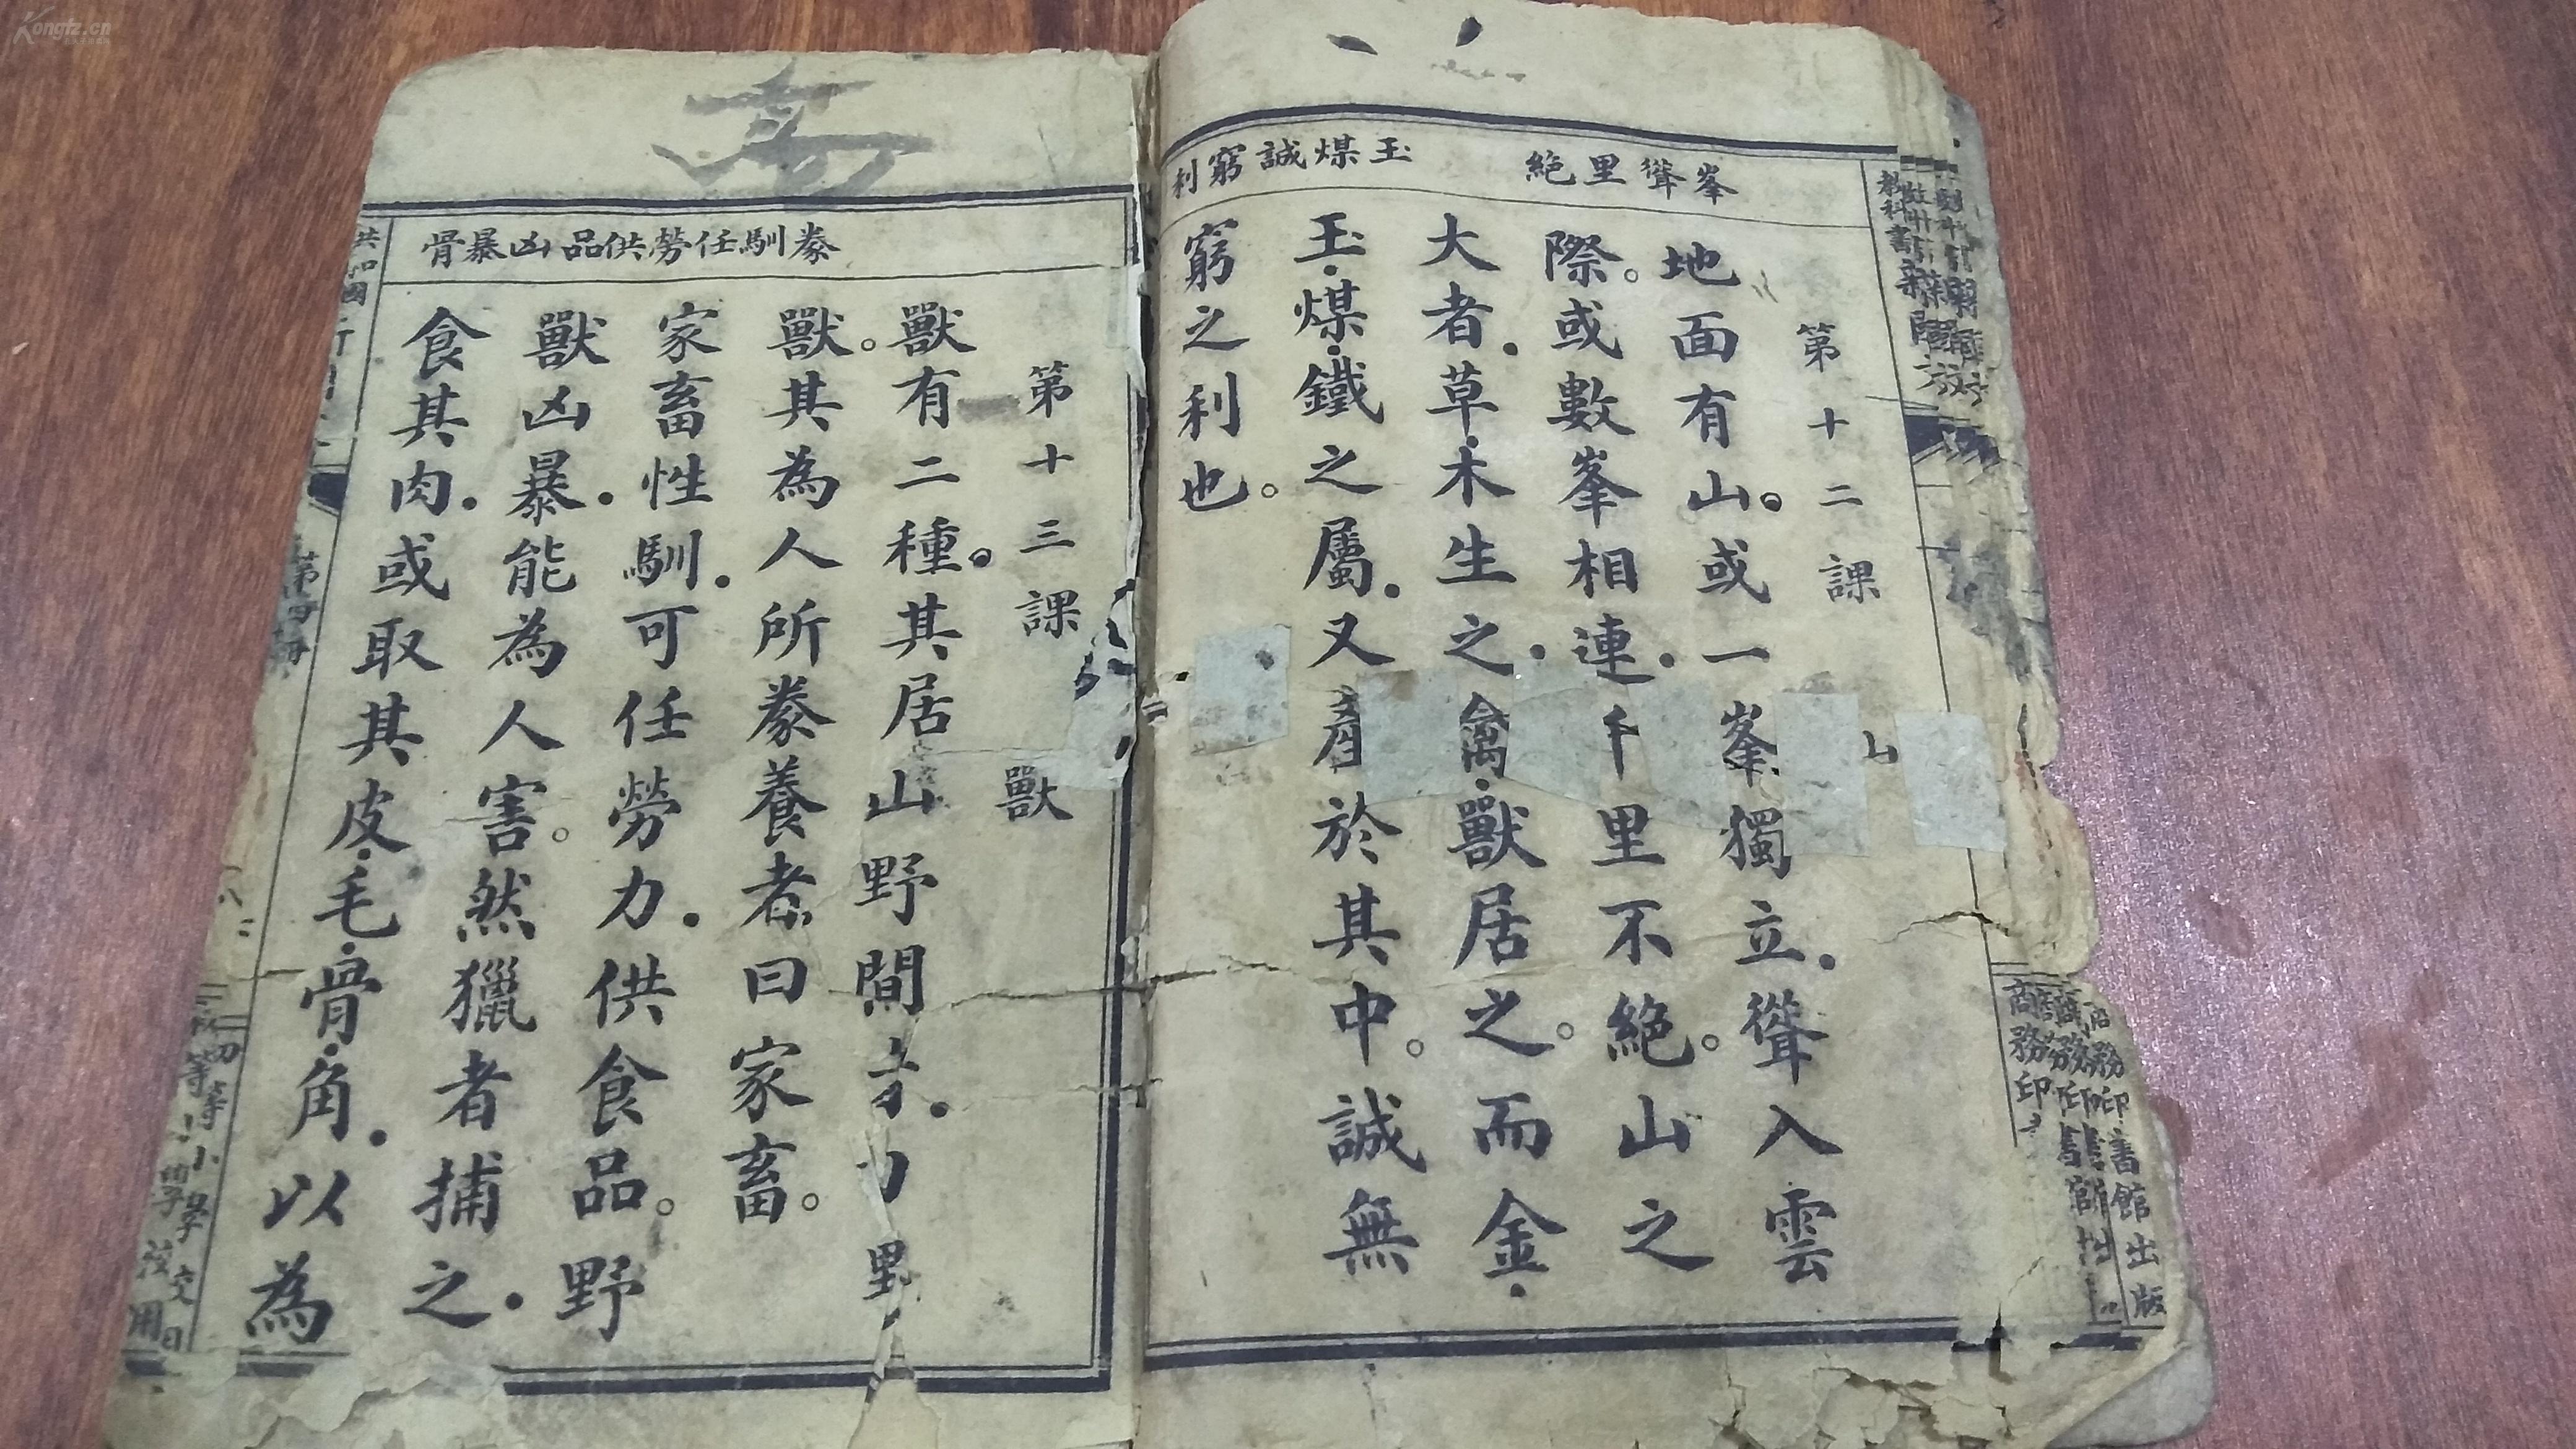 峯聳里絕
玉煤誠窮利
第十二課 山
地面有山。或一峯獨立.聳入雲
際。或數峯相連.千里不絕。山之
大者.草.木生之.禽.獸居之。而金.
玉.煤.鐵之屬.又產於其中。誠無
窮之利也。
豢馴任勞供品凶暴骨
第十三課 獸
獸有二種。其居山野間者.曰野
獸。其為人所豢養者.曰家畜。
家畜性馴.可任勞力.供食品。野
獸凶暴.能為人害。然獵者捕之.
食其肉.或取其皮.毛.骨.角.以為
共和國
第四冊
初等小學校
用
教科書新國文
商務印書館出版
Kongfz.cn